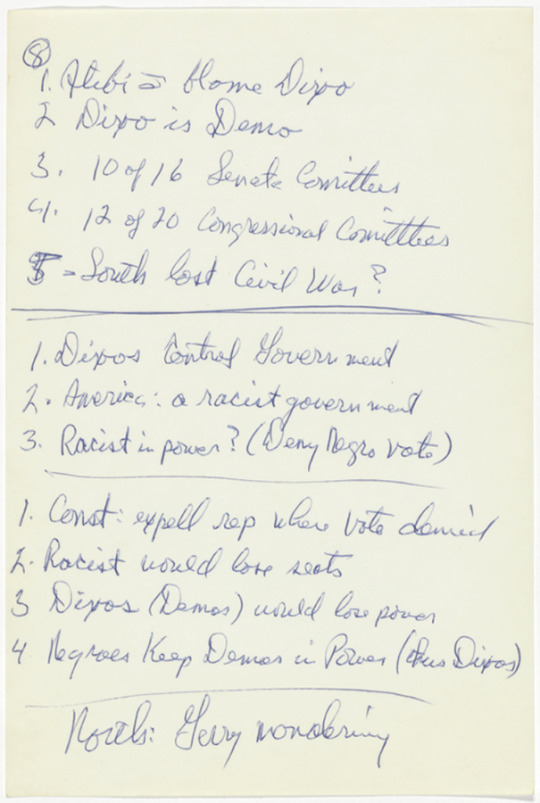 8
1. Alibi = blame Dixo
2 Dixo is Demo
3. 10 of 16 Senate Comittees
4. 12 of 20 Congressional Comittees
5 - South lost Civil War?
1. Dixos Control Government
2. America: a racist government
3. Racist in power? (Deny Negro vote)
1. Const: expell rep where vote denied
2. Racist would lose seats
3 Dixos (Demos) would lose power
4 Negroes Keep Demos in Power (thus Dixos)
North: Gerry mandering